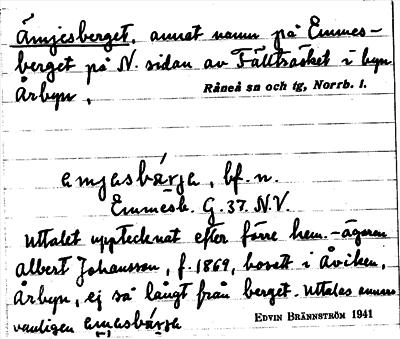 Ämjesberget, annat namn på Emmes-
berget på N. sidan av Fällträsket i byn
Årbyn.
Råneå sn och tg, Norrb. l.
amjasbärja, bf. n.
Emmesb. G. 37. N.V.
Uttalet upptecknat efter förre hem.-ägaren
Albert Johansson, f. 1869, bosatt i Åviken,
Årbyn, ej så långt från berget. Uttalas annars
vanligen amasbärja
EDVIN BRÄNNSTRÖM 1941